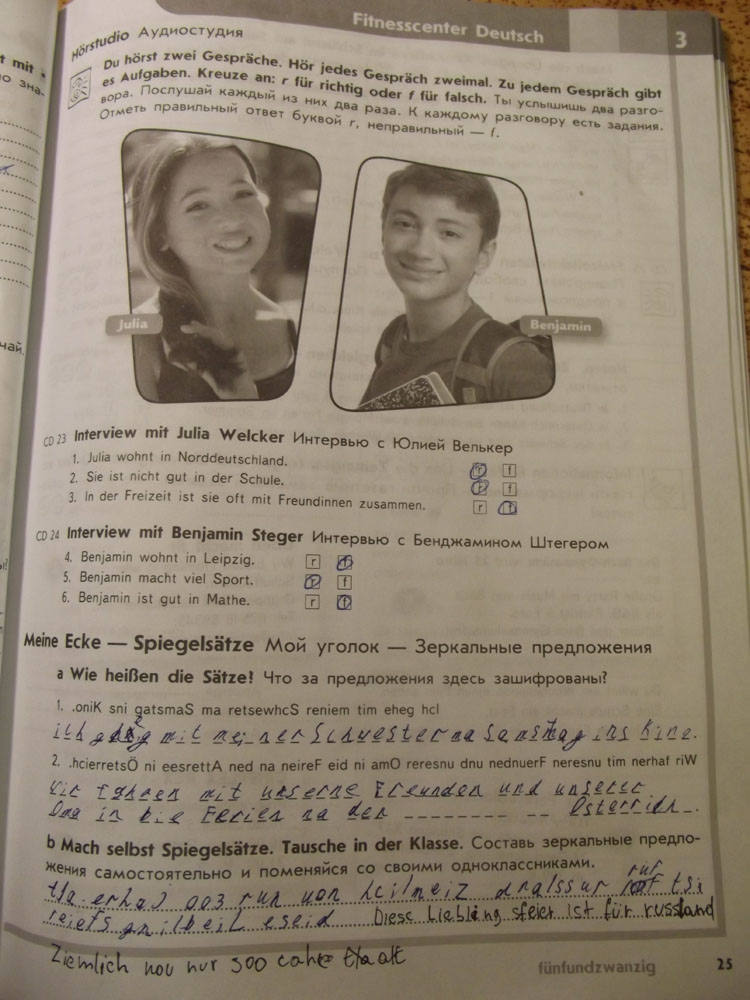 Fitnesscenter Deutsch
3
Hörstudio Аудиостудия
Du hörst zwei Gespräche. Hör jedes Gespräch zweimal. Zu jedem Gespräch gibt
es Aufgaben. Kreuze an: r für richtig oder f für falsch. Ты услышишь два разго-
вора. Послушай каждый из них два раза. К каждому разговору есть задания.
Отметь правильный ответ буквой r, неправильный — f.
Julia
Benjamin
CD 23 Interview mit Julia Welcker Интервью с Юлией Велькер
1. Julia wohnt in Norddeutschland. r f
2. Sie ist nicht gut in der Schule. r f
3. In der Freizeit ist sie oft mit Freundinnen zusammen. r f
CD 24 Interview mit Benjamin Steger Интервью с Бенджамином Штегером
4. Benjamin wohnt in Leipzig. r f
5. Benjamin macht viel Sport. r f
6. Benjamin ist gut in Mathe. r f
Meine Ecke — Spiegelsätze Мой уголок — Зеркальные предложения
a Wie heißen die Sätze? Что за предложения здесь зашифрованы?
1. .oniK sni gatsmaS ma retsewhcS reniem tim eheg hcI
ich mit meiner Schwester ma Samstag ins Kino.
2. .hcierretsÖ ni eesrettA ned na neireF eid ni amO reresnu dnu nednuerF neresnu tim nerhaf riW
Wir fahren mit unserne Freunden und unserer
Oma in die Ferien na den Österrich.
b Mach selbst Spiegelsätze. Tausche in der Klasse. Составь зеркальные предло-
жения самостоятельно и поменяйся со своими одноклассниками.
run von dnalssur tsi
gnilbeil eseid Diese Liebling sfeier ist für russland
Ziemlich nou nur 300
fünfundzwanzig
25